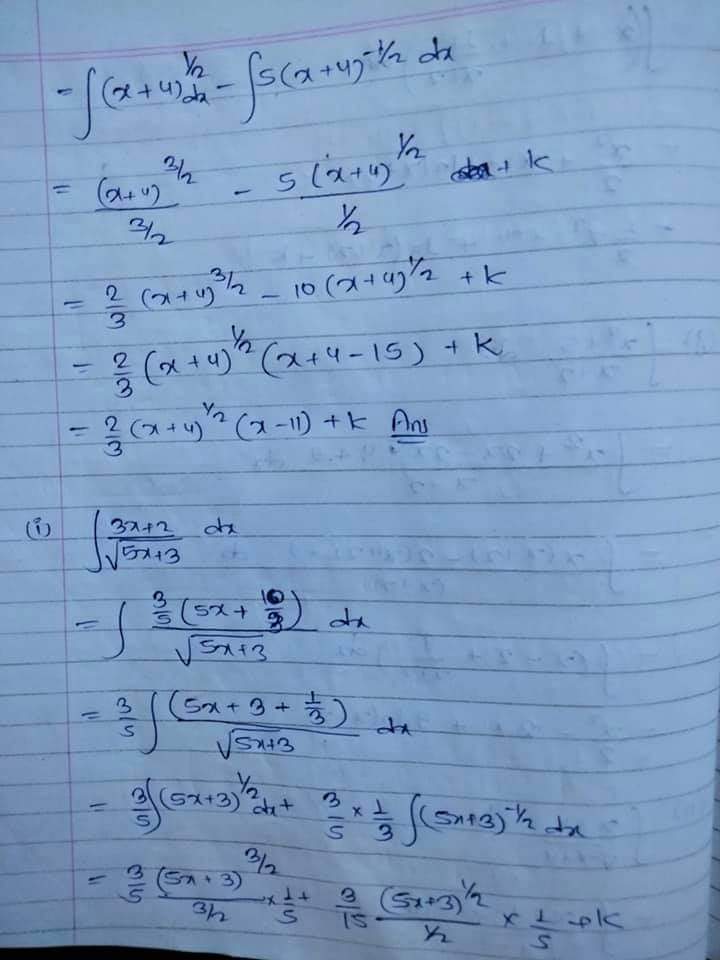 = ∫(x+4)^1/2 dx - ∫5(x+4)^-1/2 dx
= (x+4)^3/2 / 3/2 - 5(x+4)^1/2 / 1/2 + k
= 2/3 (x+4)^3/2 - 10(x+4)^1/2 + k
= 2/3 (x+4)^1/2 (x+4-15) + k
= 2/3 (x+4)^1/2 (x-11) + k Ans
(i) ∫ 3x+2 / √5x+3 dx
= ∫ 3/5 (5x + 10/3) / √5x+3 dx
= 3/5 ∫ (5x+3+1/3) / √5x+3 dx
= 3/5 ∫(5x+3)^1/2 dx + 3/5 × 1/3 ∫(5x+3)^-1/2 dx
= 3/5 (5x+3)^3/2 / 3/2 × 1/5 + 3/15 (5x+3)^1/2 / 1/2 × 1/5 + k